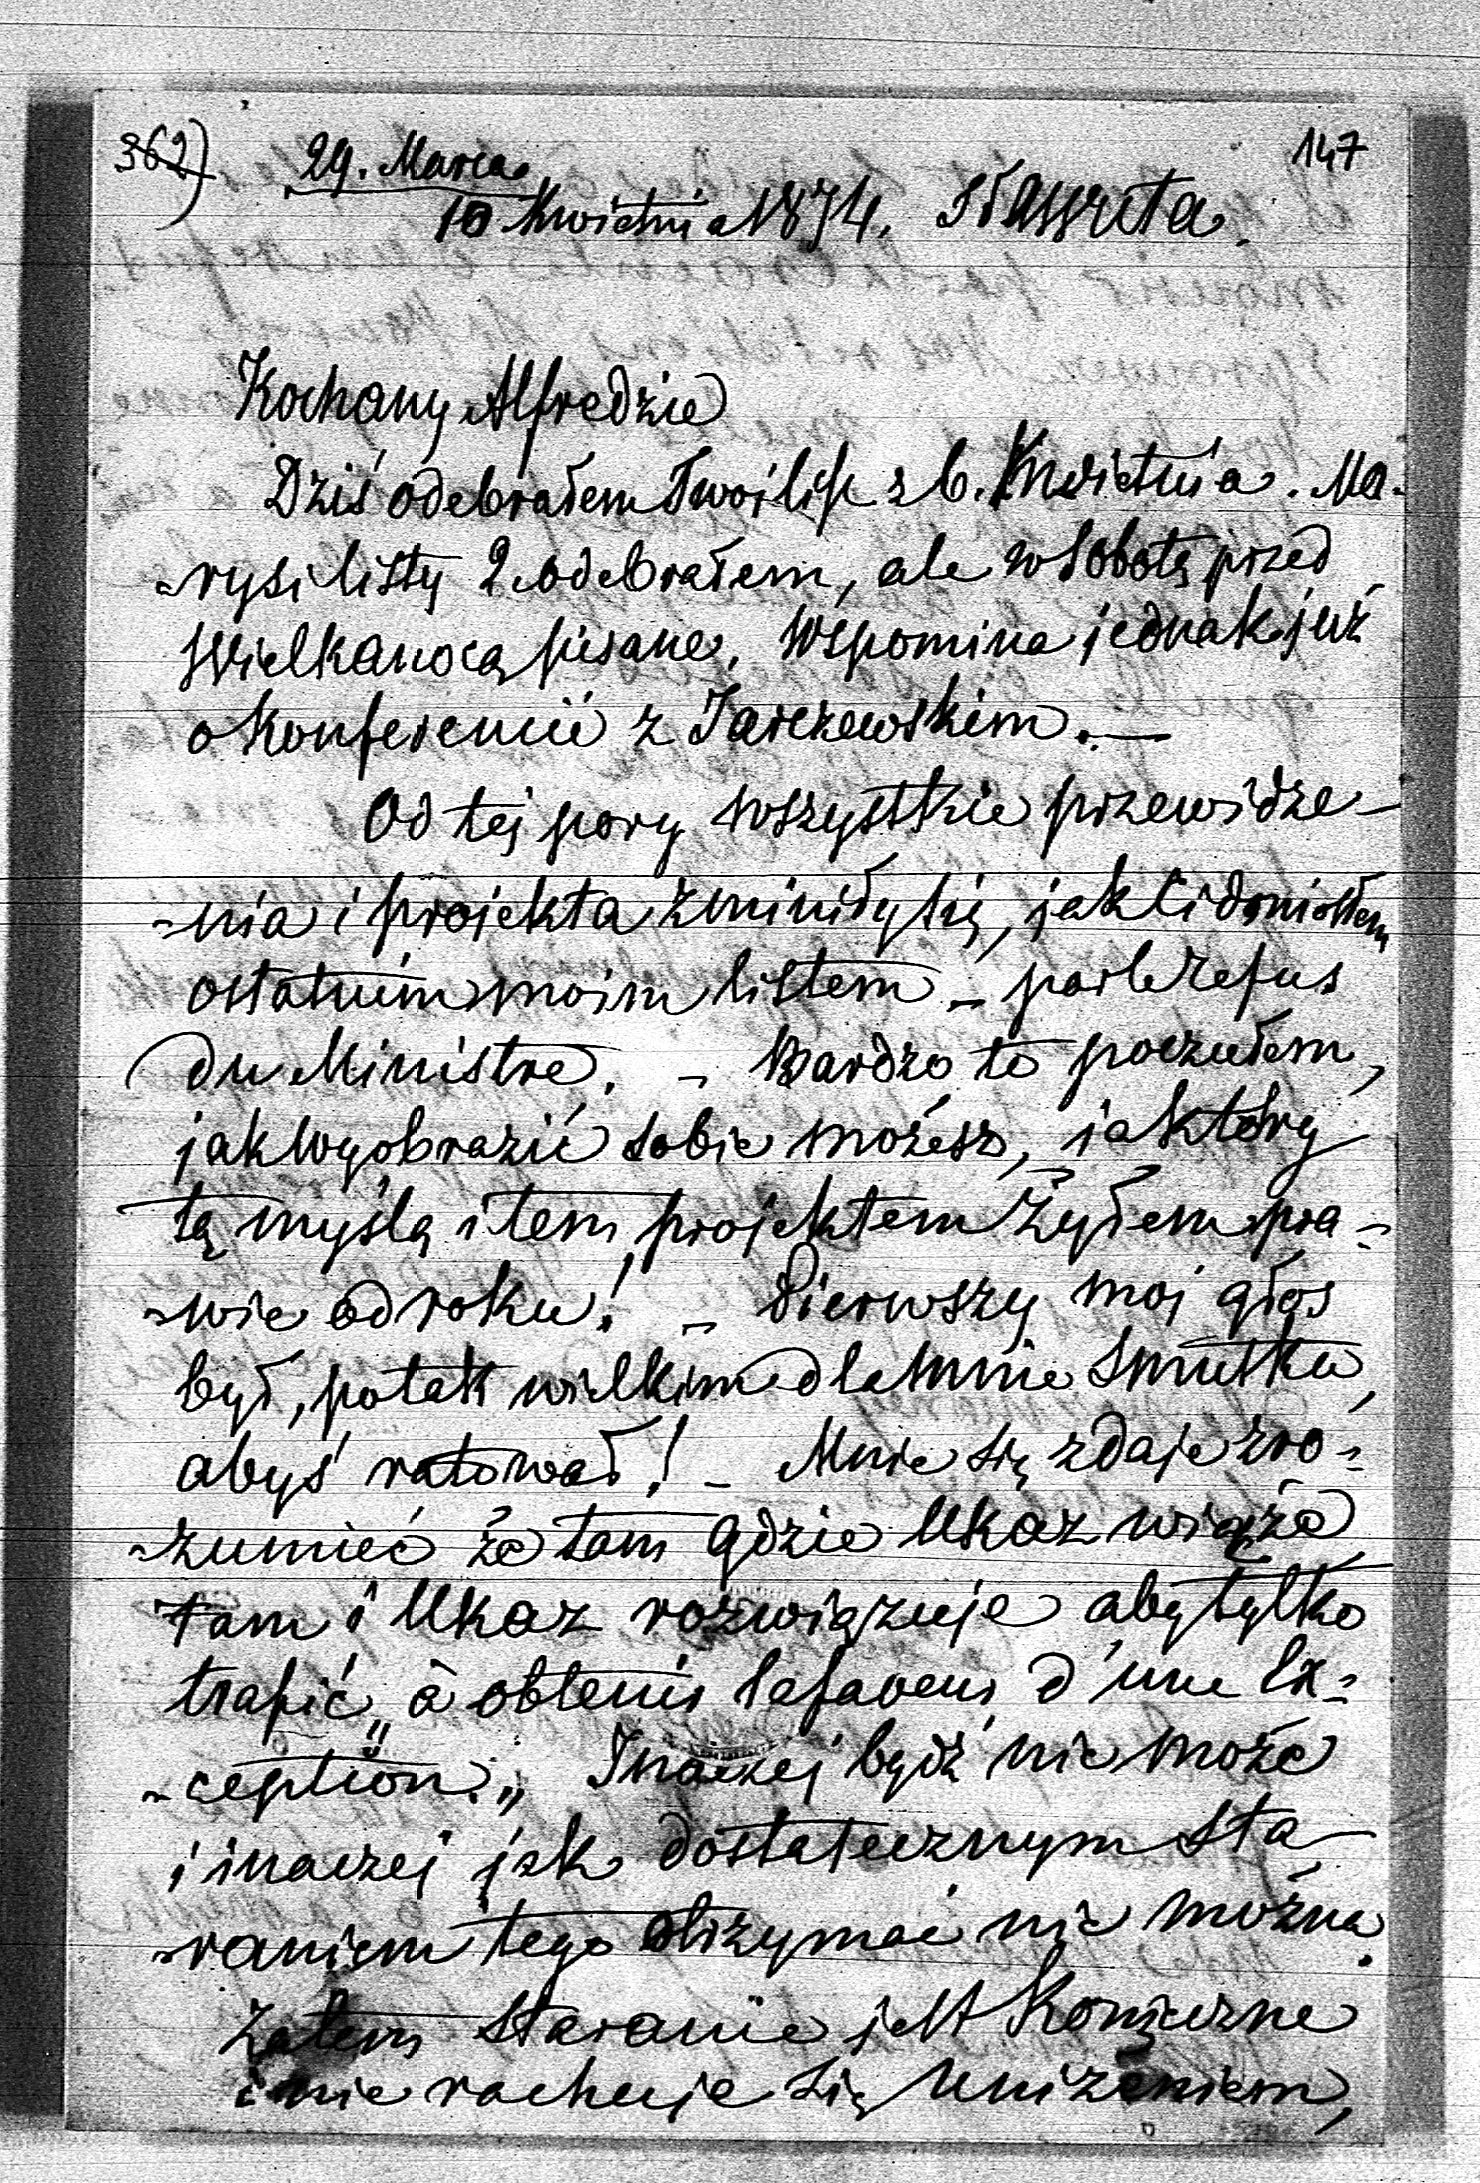 362) 29. Marca 147
10 Kwietnia 1874. Sławuta.
Kochany Alfredzie
Dziś odebrałem Twój list z 6. Kwietnia. Ma-
-rysi listy 2 odebrałem, ale w Sobotę przed
Wielkanocą pisane. Wspomina jednak już
o Konferencii z Jarczewskim. —
Od tej pory wszystkie przewidze-
-nia i projekta zminiły się, jak Ci doniosłem
ostatnim moim listem – par le refus
du Ministre. – Bardzo to poczułem,
jak wyobrazić sobie możesz, ja który
tą myślą i tem projektem żyłem pra-
-wie od roku! – Pierwszy moj głos
był, po tak wielkim dla mnie smutku,
abyś ratował! – Mnie się zdaje zro-
-zumieć że tam gdzie Ukaz wiąże
tam i Ukaz rozwiązuje aby tylko
trafić „à obtenir la faveur d'une Ex-
-ception.„ Inaczej bydź nie może
i inaczej jak dostatecznym sta-
-raniem tego otrzymać nie można.
Zatem staranie jest konieczne
i nie rachuje się uniżeniem,